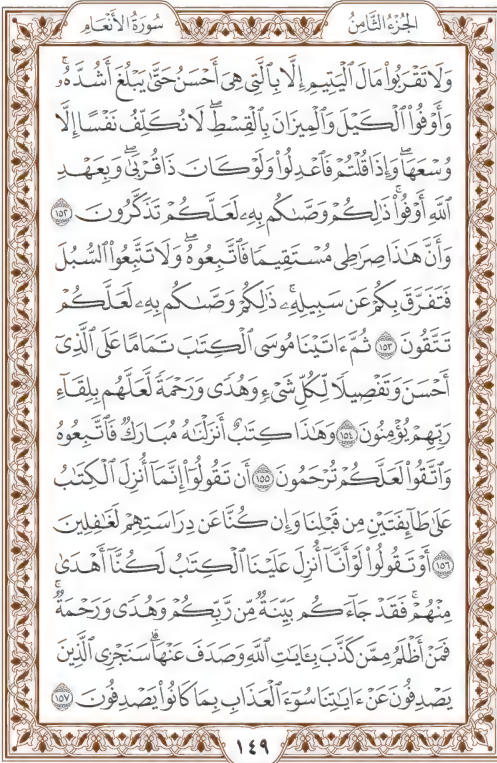 الجُزْءُ الثَّامِنُ
سُورَةُ الأَنْعَامِ
وَلَا تَقْرَبُوا۟ مَالَ ٱلْيَتِيمِ إِلَّا بِٱلَّتِى هِىَ أَحْسَنُ حَتَّىٰ يَبْلُغَ أَشُدَّهُۥۚ
وَأَوْفُوا۟ ٱلْكَيْلَ وَٱلْمِيزَانَ بِٱلْقِسْطِۖ لَا نُكَلِّفُ نَفْسًا إِلَّا
وُسْعَهَاۖ وَإِذَا قُلْتُمْ فَٱعْدِلُوا۟ وَلَوْ كَانَ ذَا قُرْبَىٰۖ وَبِعَهْدِ
ٱللَّهِ أَوْفُوا۟ۚ ذَٰلِكُمْ وَصَّىٰكُم بِهِۦ لَعَلَّكُمْ تَذَكَّرُونَ ١٥٢
وَأَنَّ هَٰذَا صِرَٰطِى مُسْتَقِيمًا فَٱتَّبِعُوهُۖ وَلَا تَتَّبِعُوا۟ ٱلسُّبُلَ
فَتَفَرَّقَ بِكُمْ عَن سَبِيلِهِۦۚ ذَٰلِكُمْ وَصَّىٰكُم بِهِۦ لَعَلَّكُمْ
تَتَّقُونَ ١٥٣ ثُمَّ ءَاتَيْنَا مُوسَى ٱلْكِتَٰبَ تَمَامًا عَلَى ٱلَّذِىٓ
أَحْسَنَ وَتَفْصِيلًا لِّكُلِّ شَىْءٍ وَهُدًى وَرَحْمَةً لَّعَلَّهُم بِلِقَآءِ
رَبِّهِمْ يُؤْمِنُونَ ١٥٤ وَهَٰذَا كِتَٰبٌ أَنزَلْنَٰهُ مُبَارَكٌ فَٱتَّبِعُوهُ
وَٱتَّقُوا۟ لَعَلَّكُمْ تُرْحَمُونَ ١٥٥ أَن تَقُولُوٓا۟ إِنَّمَآ أُنزِلَ ٱلْكِتَٰبُ
عَلَىٰ طَآئِفَتَيْنِ مِن قَبْلِنَا وَإِن كُنَّا عَن دِرَاسَتِهِمْ لَغَٰفِلِينَ
١٥٦ أَوْ تَقُولُوا۟ لَوْ أَنَّآ أُنزِلَ عَلَيْنَا ٱلْكِتَٰبُ لَكُنَّآ أَهْدَىٰ
مِنْهُمْۚ فَقَدْ جَآءَكُم بَيِّنَةٌ مِّن رَّبِّكُمْ وَهُدًى وَرَحْمَةٌۚ
فَمَنْ أَظْلَمُ مِمَّن كَذَّبَ بِـَٔايَٰتِ ٱللَّهِ وَصَدَفَ عَنْهَاۗ سَنَجْزِى ٱلَّذِينَ
يَصْدِفُونَ عَنْ ءَايَٰتِنَا سُوٓءَ ٱلْعَذَابِ بِمَا كَانُوا۟ يَصْدِفُونَ ١٥٧
١٤٩